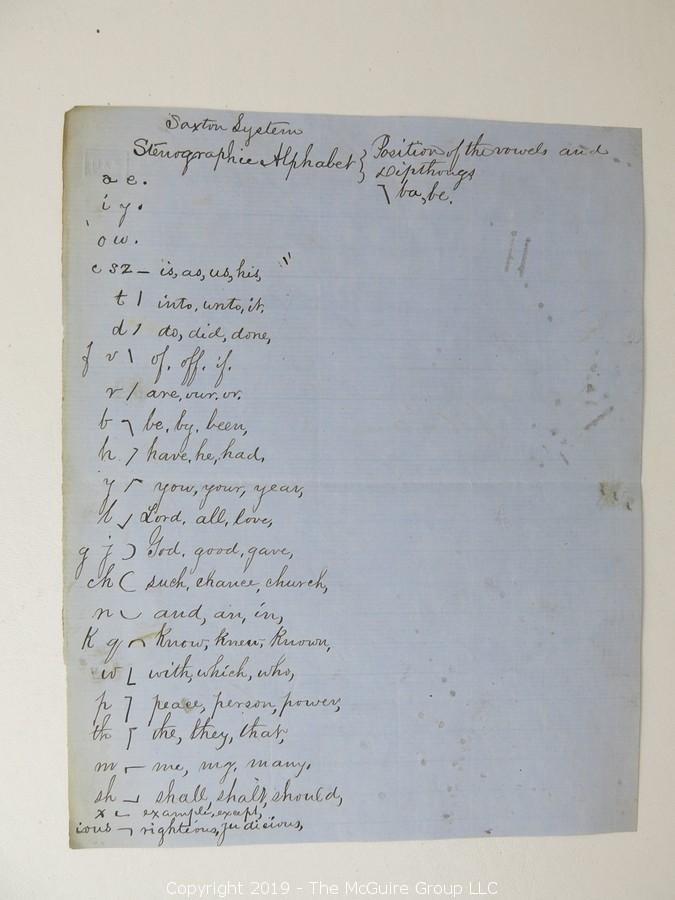 Saxton System
Stenographic Alphabet } Position of the vowels and
Dipthongs
ba, be.
a e .
i y .
o u .
c s z – is, as, us, his,
t | into, unto, it,
d / do, did, done,
f v \ of. off. if.
r / are, our, or.
b ¬ be, by, been,
h have, he, had,
y you, your, year,
l Lord, all, love,
g j ) God, good, gave,
ch ( such, chance, church,
n ‿ and, an, in,
K q know, knew, known,
w with, which, who,
p peace, person, power,
th the, they, that,
m me, my, many.
sh shall, shalt, should,
x example, except,
ious righteous, judicious,
Copyright 2019 - The McGuire Group LLC